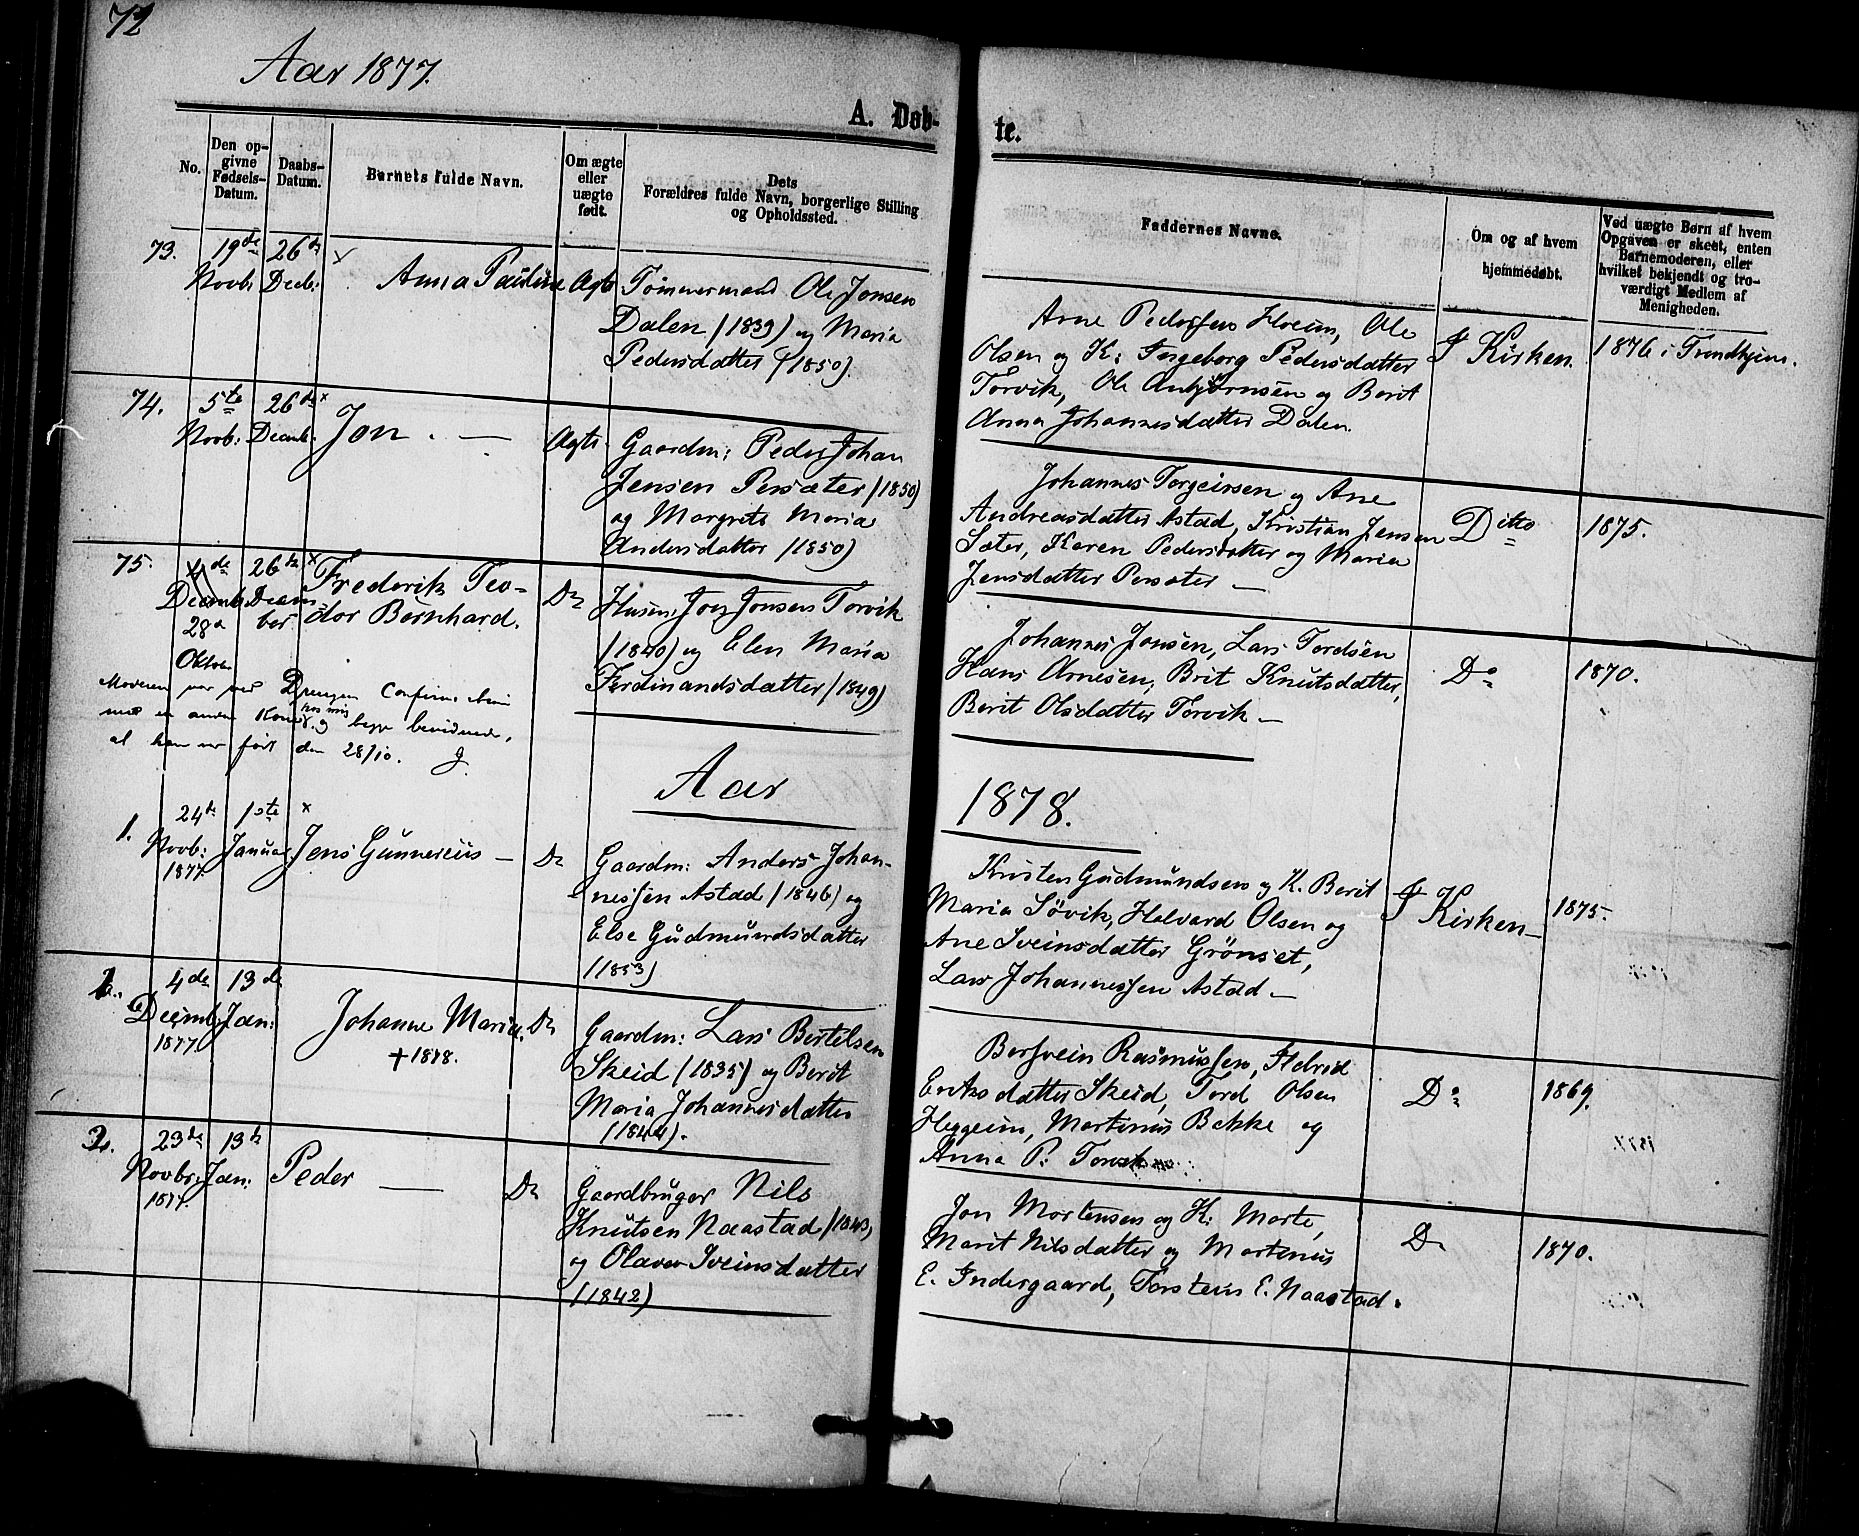 72
Aar 1877.
A. Døb-
te.
No.
Den op-
givne
Fødsels-
Datum.
Daabs-
Datum.
Barnets fulde Navn.
Om ægte
eller
uægte
født.
Dets
Forældres fulde Navn, borgerlige Stilling
og Opholdssted.
Faddernes Navne.
Om og af hvem
hjemmedøbt.
Ved uægte Børn af hvem
Opgaven er skeet, enten
Barnemoderen, eller
hvilket bekjendt og tro-
værdigt Medlem af
Menigheden.
73.
19de
Novb:
26de
Decb:
x
Anna Pauline
Ægte
Tømmermand Ole Jonsen
Dalen (1839) og Maria
Pedersdatter (1850).
Arne Pederssen Hoem, Ole
Olsen og K: Ingeborg Pedersdatter
Torvik, Ole Anbjørnsen og Berit
Anna Johannesdatter Dalen.
I Kirken.
1876 i Trondhjem.
74.
5te
Novb:
26de x
Decemb:
Jon. —
Ægte
Gaardm: Peder Johan
Jensen Persæter (1850)
og Margrete Maria
Andersdatter (1850)
Johannes Torgeirsen og Ane
Andreasdatter Astad, Kristian Jensen
Sæter, Karen Pedersdatter og Maria
Jensdatter Persæter —
Ditto
1875.
75.
4de
Decemb.
28de
Oktob.
26de x
Decem-
ber
Frederik Teo-
dor Bernhard.
Do
Husm: Jon Jonsen Torvik
(1840) og Elen Maria
Ferdinandsdatter (1849)
Johannes Jonsen, Lars Tordsen
Hans Arnesen, Brit Knutsdatter,
Berit Olsdatter Torvik —
Do
1870.
Moderen var ved Drengen
med en anden Kone hos mig og begge bevidnede,
at han var født den 28/10. J.
Aar
1878.
1.
24de
Novb:
1877
1ste
Januar
x
Jens Gunnerius —
Do
Gaardm: Anders Johan-
nessen Astad (1846) og
Else Gudmundsdatter
(1853)
Kristen Gudmundsen og K. Berit
Maria Søvik, Halvard Olsen og
Ane Sveinsdatter Grønset,
Lars Johannessen Astad —
I Kirken —
1875.
2.
4de
Decemb.
1877.
13de
Jan:
Johanne Maria.
† 1878.
Do
Gaardm: Lars Bertilsen
Skeid (1835) og Berit
Maria Johannesdatter
(1844).
Bersvein Rasmussen, Ildrid
Eriksdatter Skeid, Tord Olsen
Heggeim, Martinus Bakke og
Anna P: Torvik
Do
1869.
3.
23de
Novbr.
1877.
13de
Jan:
Peder —
Do
Gaardbruger Nils
Knutsen Naastad (1843)
og Olava Sveinsdatter
(1842)
Jon Mortensen og K: Marte,
Marit Nilsdatter og Martinus
E. Indergaard, Torstein E. Naastad.
Do
1870.